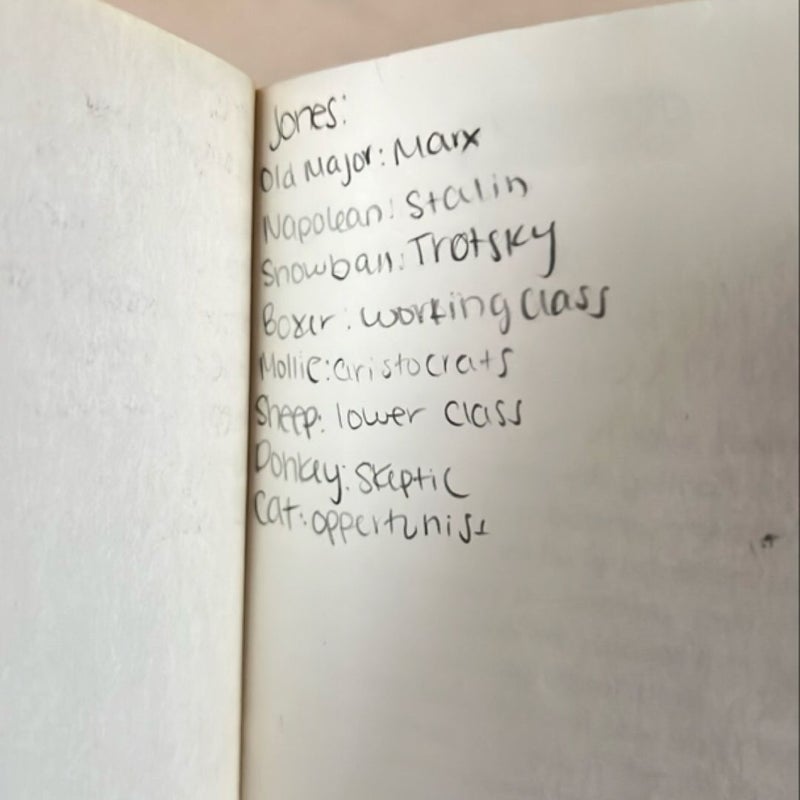 Jones:
Old Major: Marx
Napolean: Stalin
Snowball: Trotsky
Boxer: working class
Mollie: aristocrats
Sheep: lower class
Donkey: Skeptic
Cat: oppertunist